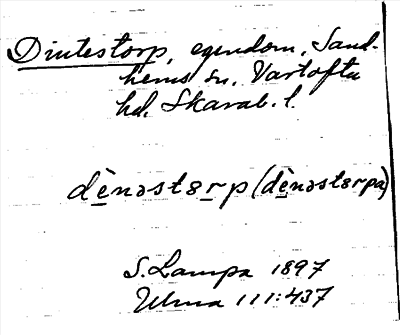 Dintestorp, egendom, Sand-
hems sn, Vartofta
hd. Skarab. l.
dènəstɜrp (dènəstɜrpa)
S. Lampa 1897
Ulma 111:437